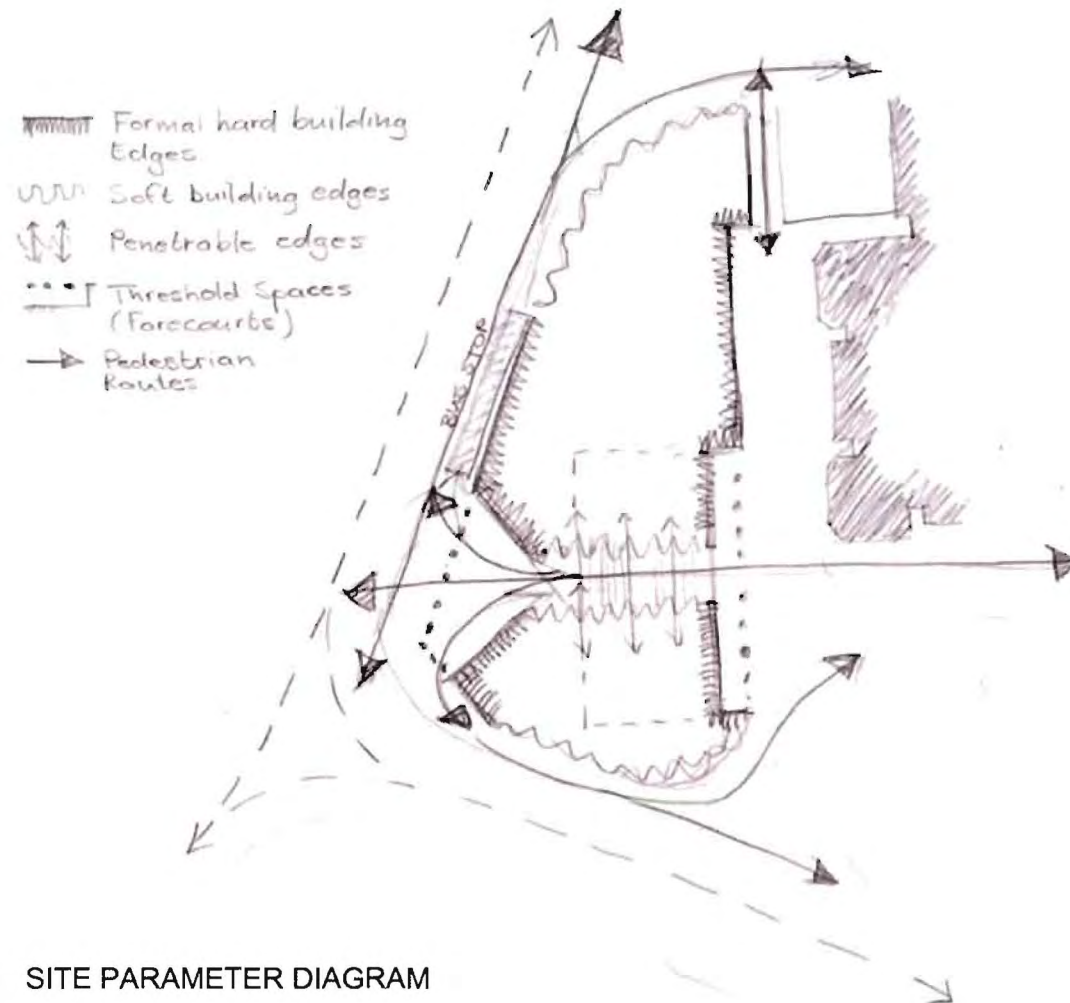 Formal hard building
Edges
Soft building edges
Penetrable edges
Threshold Spaces
(Forecourts)
Pedestrian
Routes
BUS STOP
SITE PARAMETER DIAGRAM